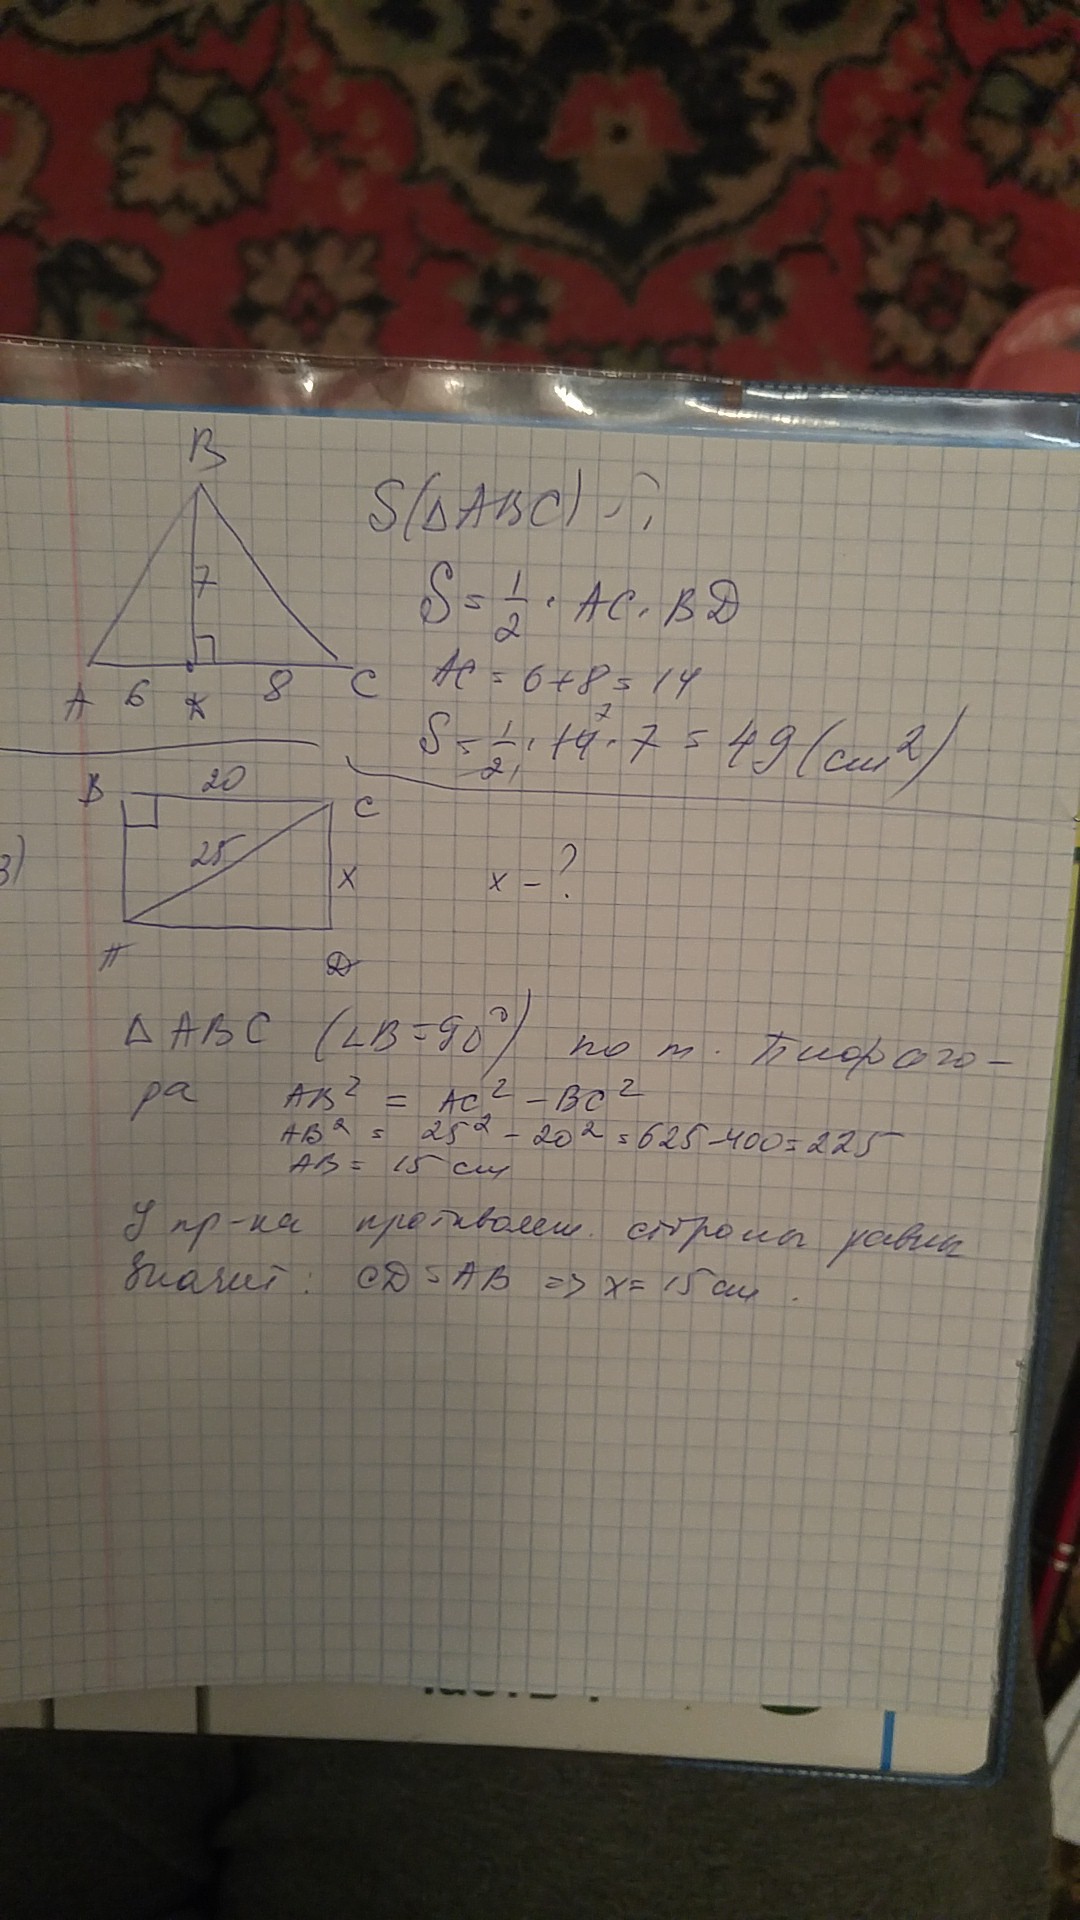 B
S(△ABC) - ?
7
S = 1/2 · AC · BD
A 6 K 8 C
AC = 6+8 = 14
S = 1/2 · 14 · 7 = 49 (см²)
7
1
3)
B 20 C
25
x
x - ?
A D
△ABC (∠B=90°) по т. Пифаго-
ра AB² = AC² - BC²
AB² = 25² - 20² = 625-400=225
AB = 15 см
У пр-ка противолеж. стороны равны
Значит: CD = AB => x = 15 см.